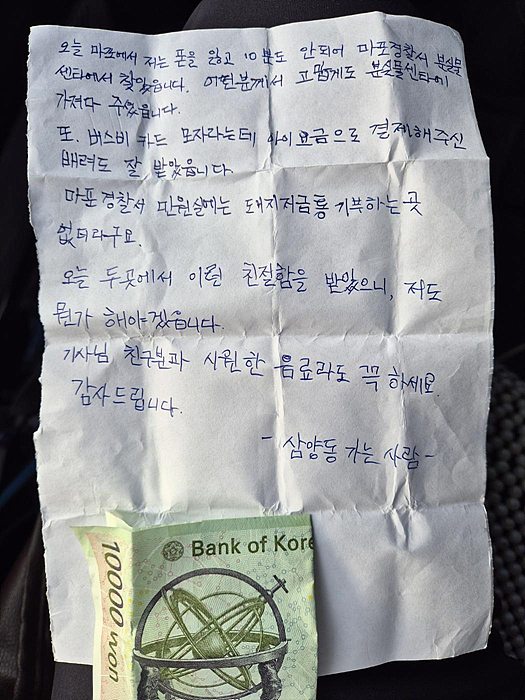 오늘 마포에서 저는 폰을 잃고 10분도 안되어 마포경찰서 분실물
센타에서 찾았습니다. 어떤분께서 고맙게도 분실물센타에
가져다 주었습니다.
또. 버스비 카드 모자라는데 아이요금으로 결제해주신
배려도 잘 받았읍니다.
마포경찰서 민원실에는 돼지저금통 기부하는곳
없더라구요.
오늘 두곳에서 이럴 친절함을 받았으니, 저도
뭔가 해야겠습니다.
기사님 친구분과 시원한 음료라도 꼭 하세요.
감사드립니다.
- 삼양동 가는 사람 -
Bank of Kore
10000 won